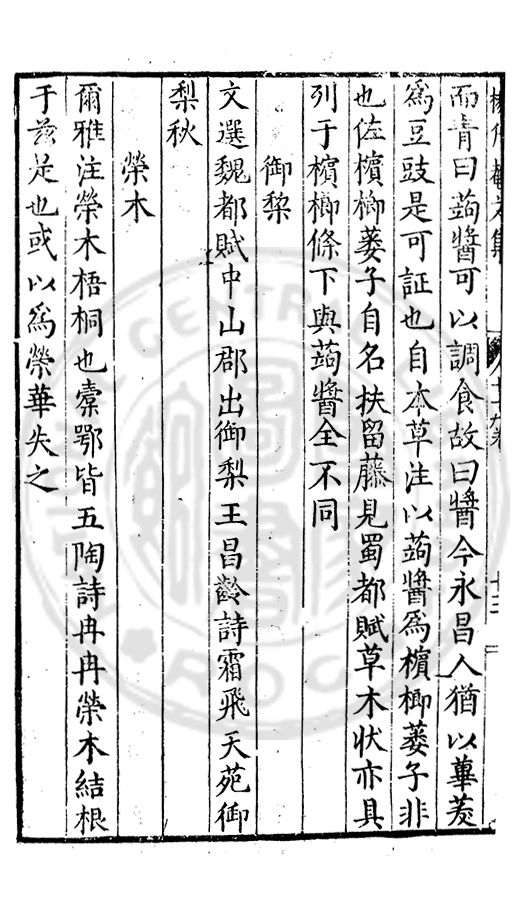 而青曰蒟醬可以調食故曰醬今永昌人猶以蓽茇
為豆豉是可証也自本草注以蒟醬為檳榔蔞子非
也佐檳榔蔞子自名扶留藤見蜀都賦草木狀亦具
列于檳榔條下與蒟醬全不同
御棃
文選魏都賦中山郡出御梨王昌齡詩霜飛天苑御
梨秋
榮木
爾雅注榮木梧桐也橐鄂皆五陶詩冉冉榮木結根
于茲是也或以為榮華失之